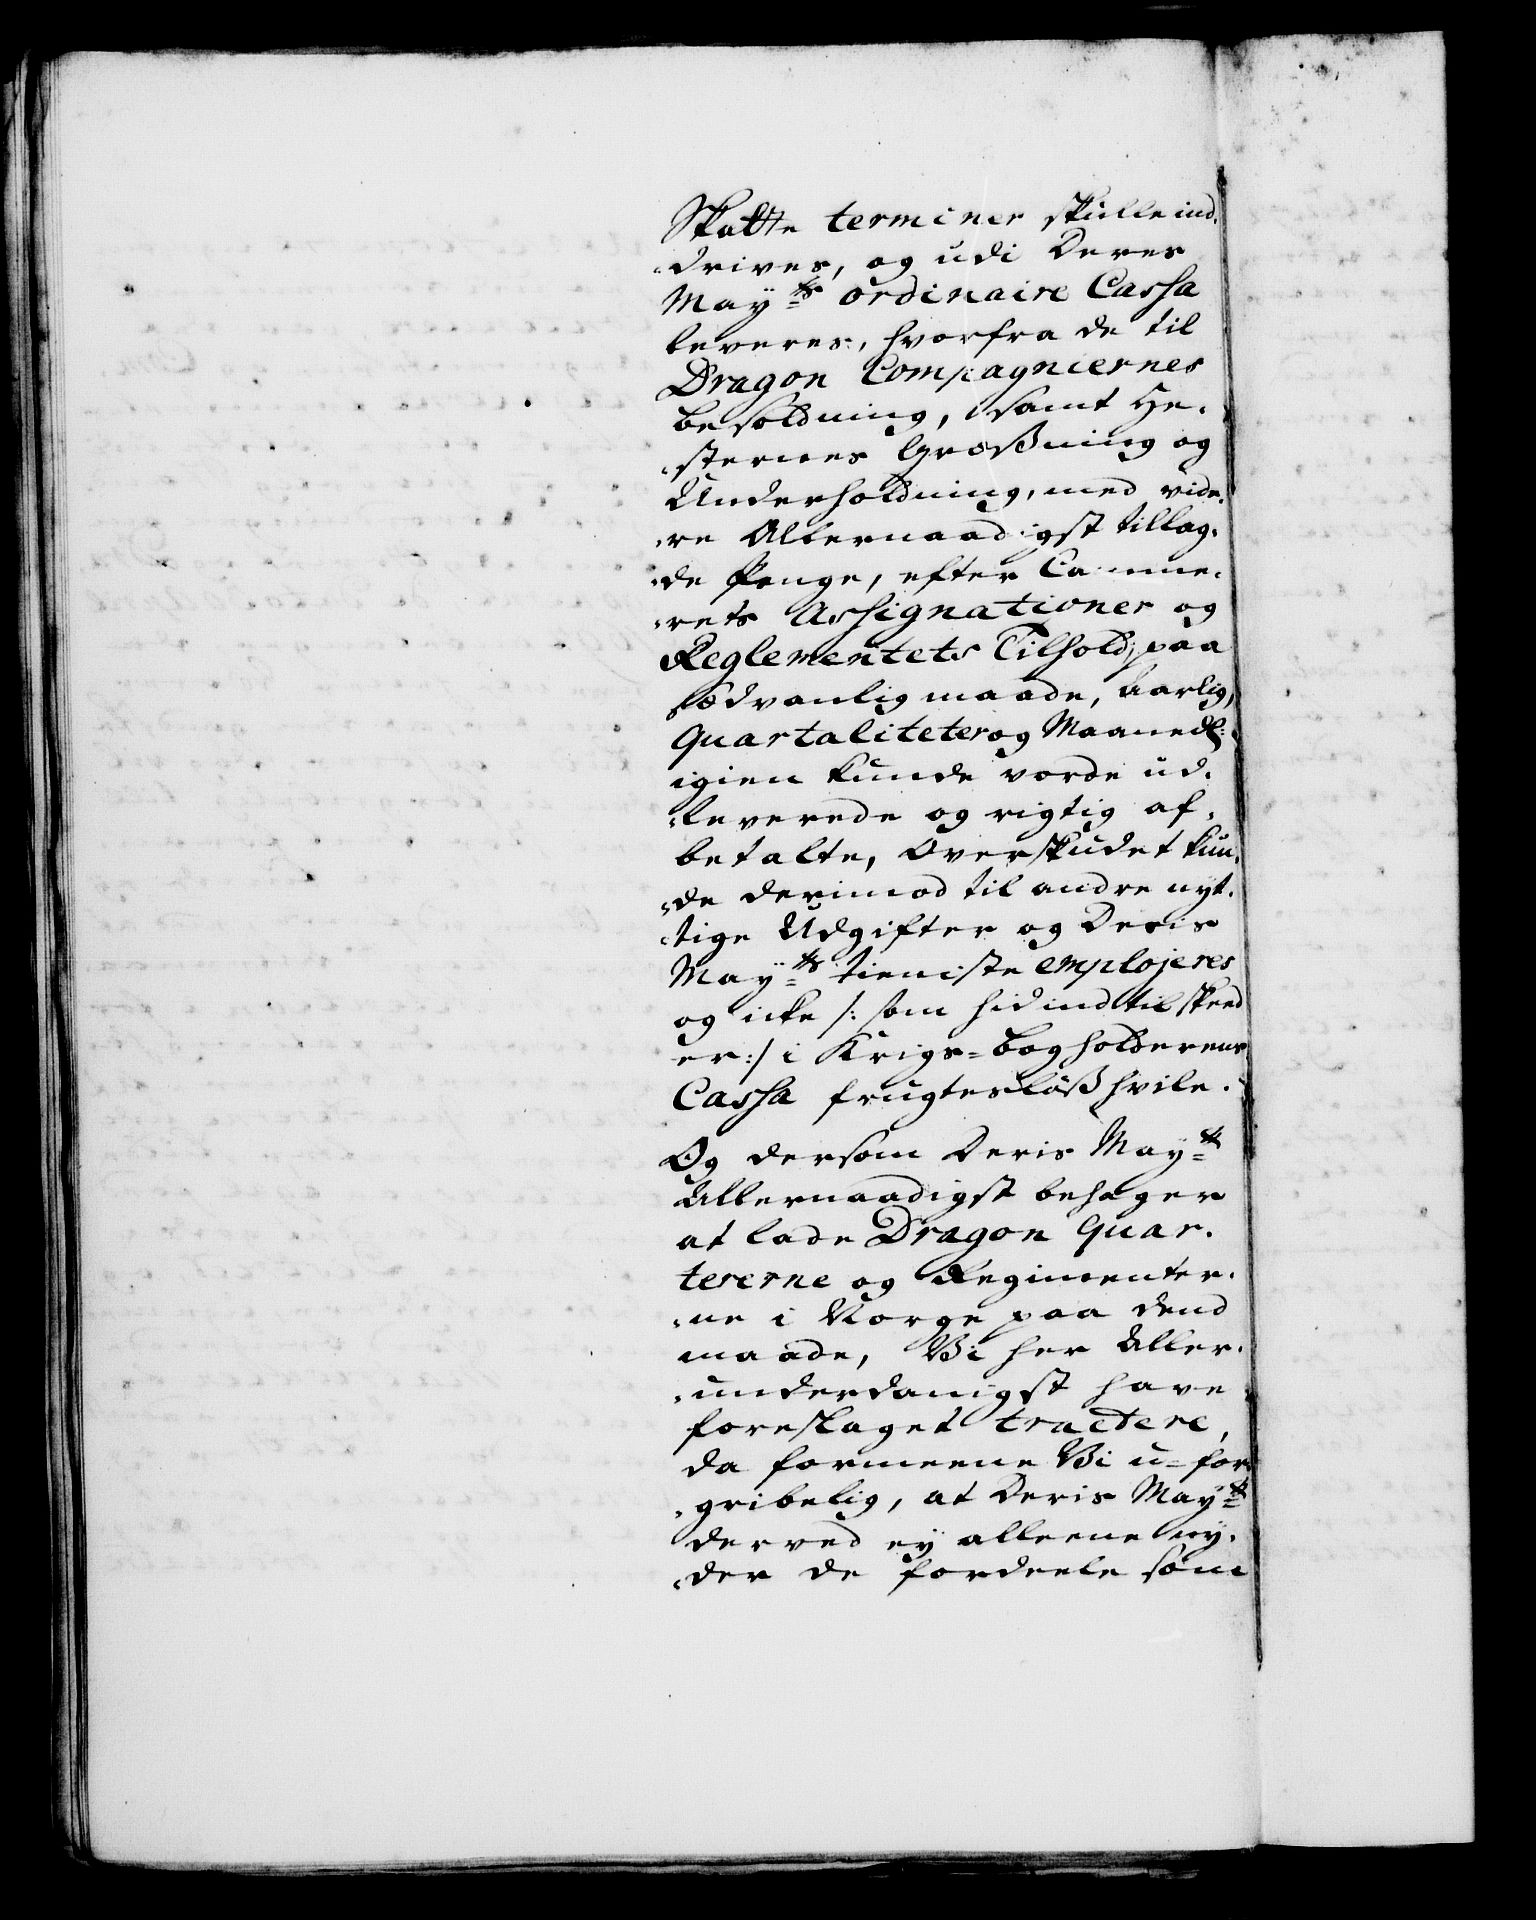 Skatte terminer skulle ind-
drives, og udi Deres
May:ts ordinaire Cassa
leveres, hvorfra de til
Dragon Compagniernes
besoldning, samt He-
sternes Græßning og
Underholdning, med vide-
re Allernaadigst tillag-
de Penge, efter Camme-
rets Assignationer og
Reglementets Tilhold, paa
sædvanlig maade, Aarlig,
Quartaliteter og Maanedl:
igien kunde vorde ud-
leverede og rigtig af-
betalte, Overskudet kun-
de derimod til andre nyt-
tige Udgifter og Deris
May:ts tieniste emplojeres
og icke /: som hid indtil skeed
er :/ i Krigs-bogholderens
Cassa frugtesløß hvile.
Og dersom Deris May:tt
Allernaadigst behager
at lade Dragon Quar-
tererne og Regimenter-
ne i Norge paa dend
maade, Vi her Aller-
underdanigst have
foreslaget tractere,
da formeene Vi u-for-
gribelig, at Deris May:tt
derved ey alleene ny-
der de fordeele som